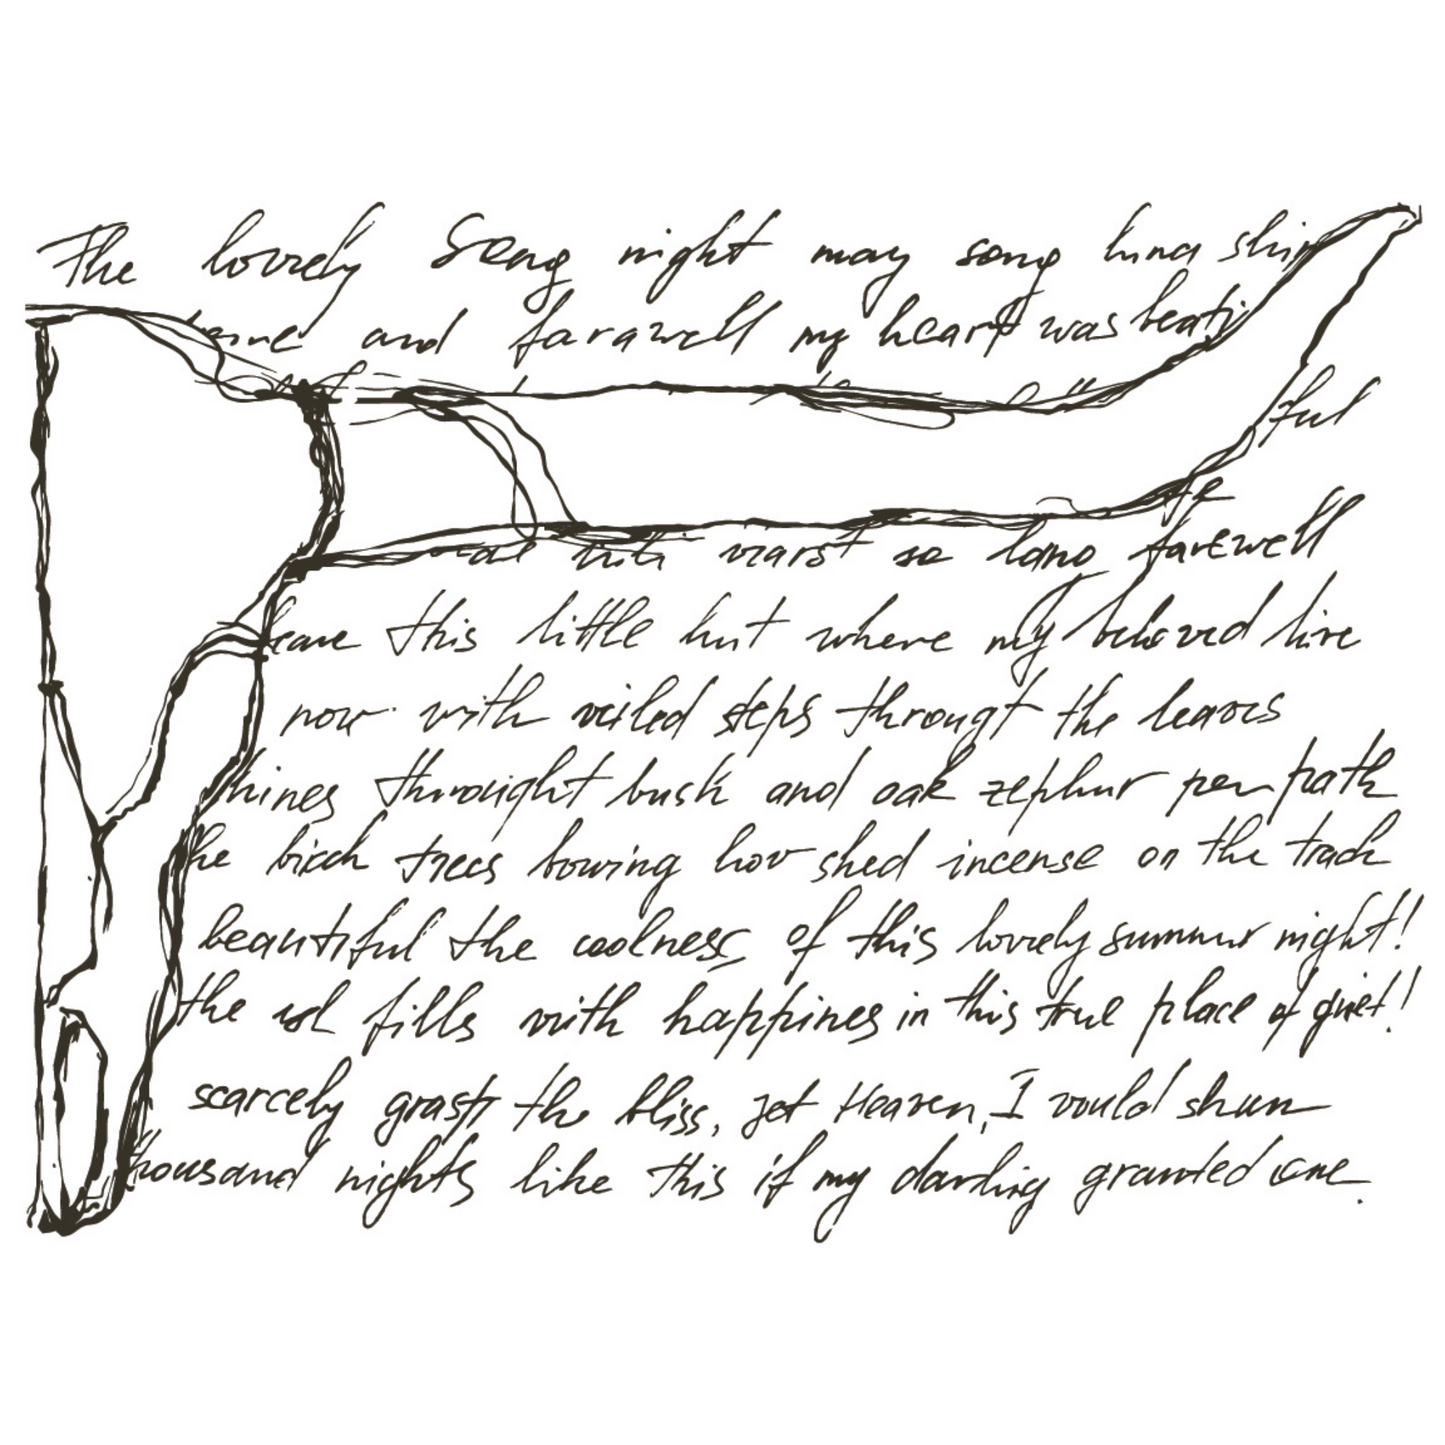 The lovely Song night may song luna shin
and farawell my heart was beati
ful
viars't so long farewell
leave this little hut where my beloved live
now with veiled steps througt the leaves
hines throught busk and oak zephur per path
he birch trees bowing hov shed incense on the track
beautiful the coolness of this lovely summer night!
the fills with happines in this true place of quiet!
scarcely the bliss, jet Heaven, I would shun
housand nights like this if my darling granted one.